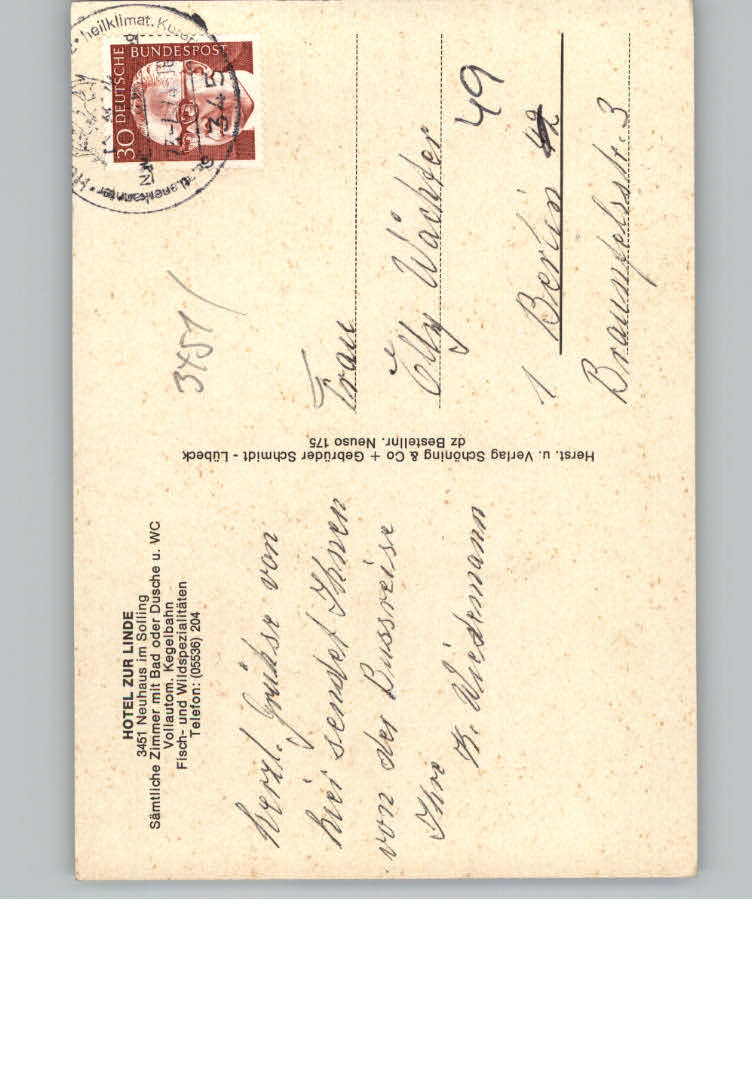 HOTEL ZUR LINDE
3451 Neuhaus im Solling
Sämtliche Zimmer mit Bad oder Dusche u. WC
Vollautom. Kegelbahn
Fisch- und Wildspezialitäten
Telefon: (05536) 204
herzl. Grühse von
hier sendet Ihnen
von der Bussreise
Ihre
K. Wiedemann
Herst. u. Verlag Schöning & Co + Gebrüder Schmidt - Lübeck
dz Bestellnr. Neuso 175
30 DEUTSCHE BUNDESPOST
heilklimat.
345
3451/
Frau
Elly Wächter
49
1 Berlin 42
Braunfelsstr. 3